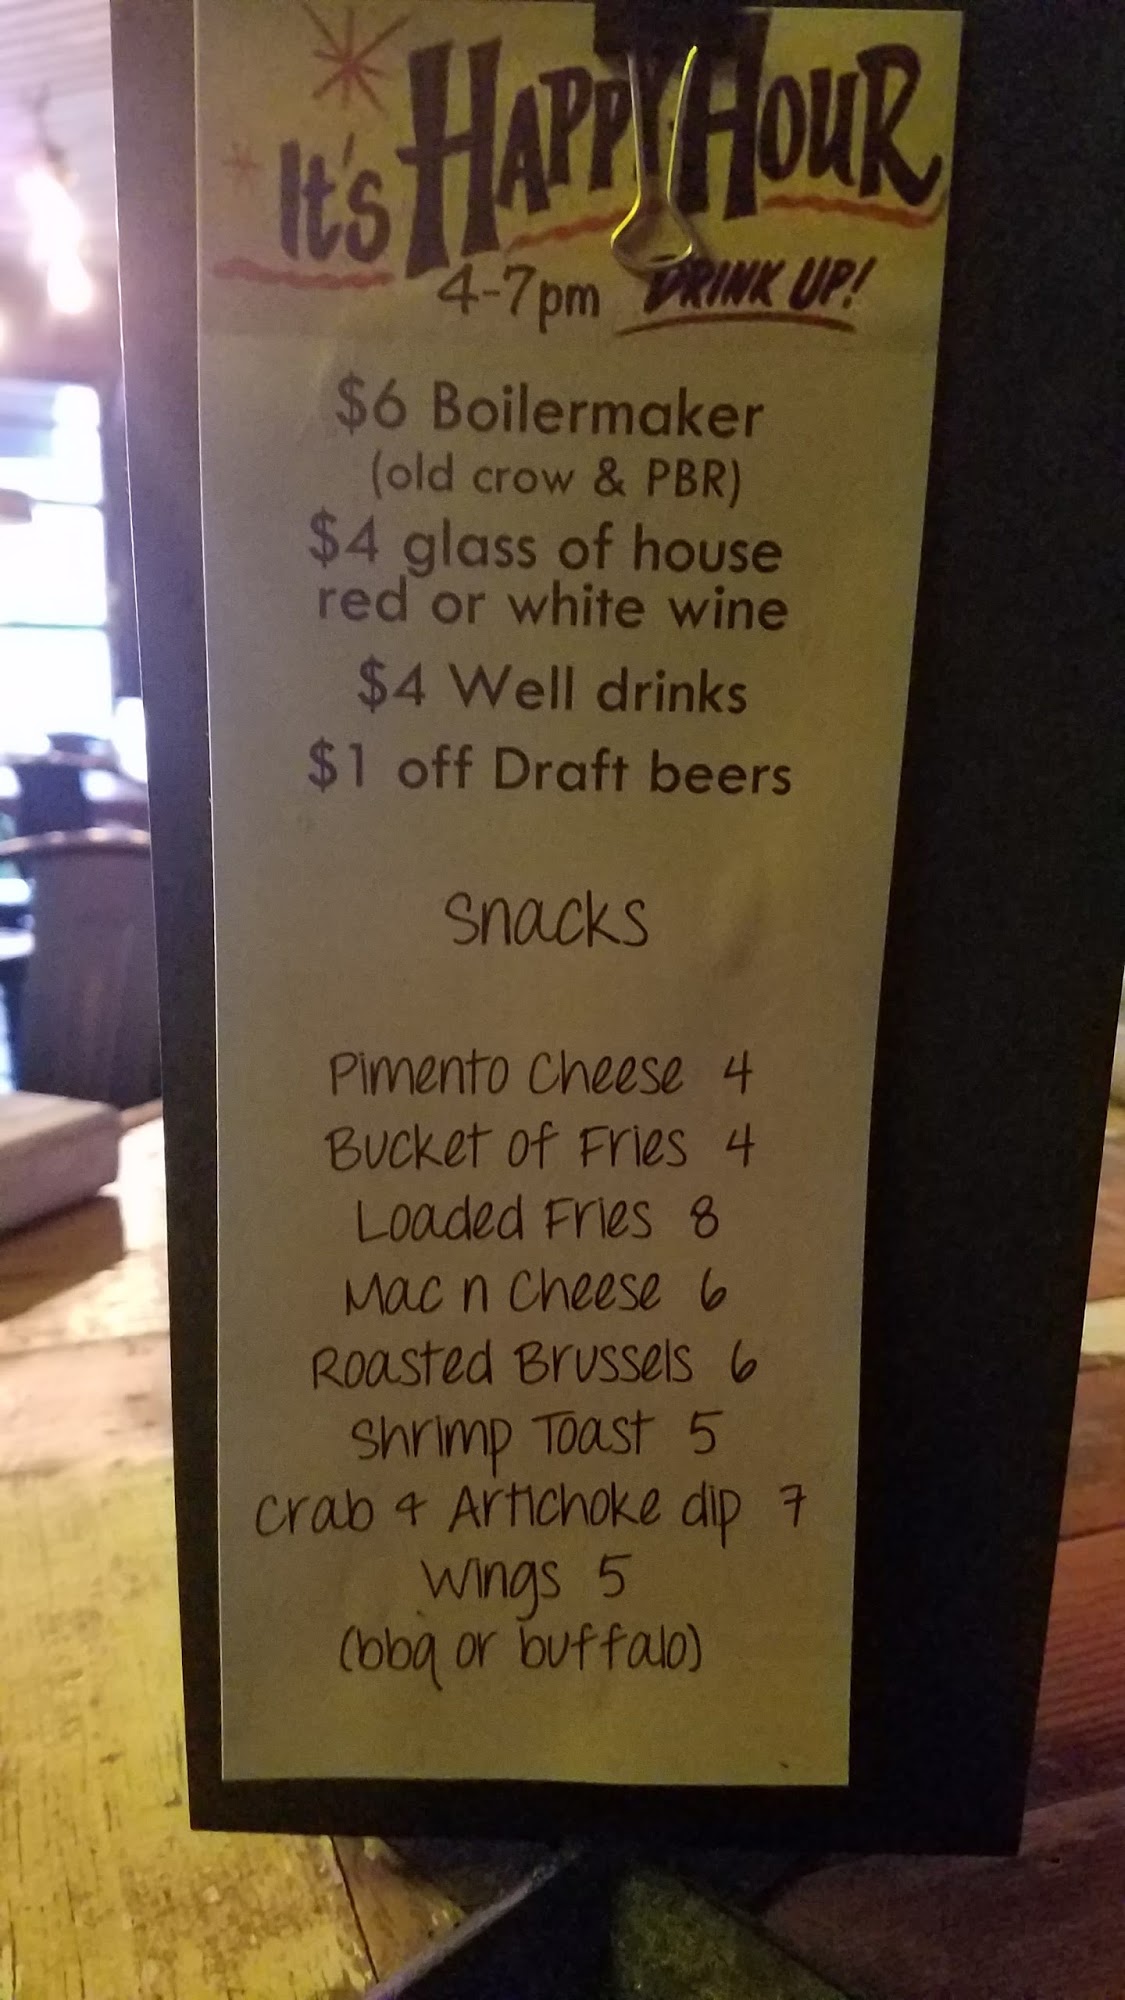 It's HAPPY HOUR
4-7pm DRINK UP!
$6 Boilermaker
(old crow & PBR)
$4 glass of house
red or white wine
$4 Well drinks
$1 off Draft beers
Snacks
Pimento Cheese 4
Bucket of Fries 4
Loaded Fries 8
Mac n Cheese 6
Roasted Brussels 6
Shrimp Toast 5
Crab & Artichoke dip 7
Wings 5
(bbq or buffalo)